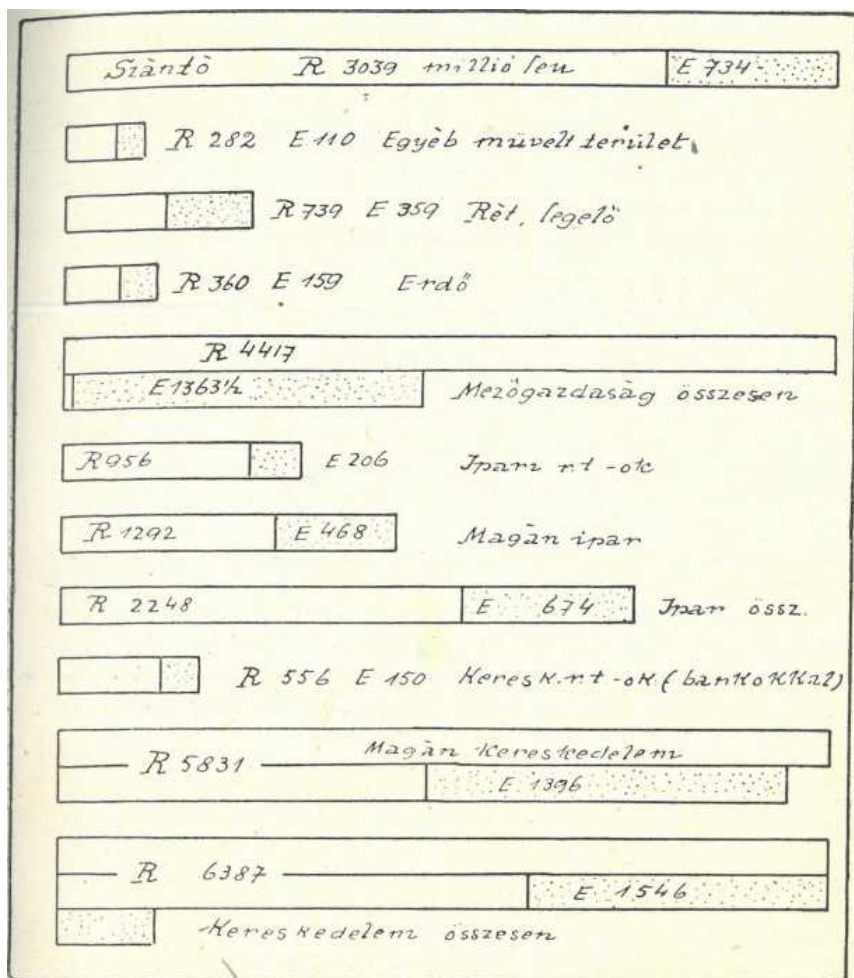 Szántó R 3039 millió leu E 734
R 282 E 110 Egyéb müvelt terület
R 739 E 359 Rét, legelő
R 360 E 159 Erdő
R 4417
E 1363½ Mezőgazdaság összesen
R 956 E 206 Ipari rt-ok
R 1292 E 468 Magán ipar
R 2248 E 674 Ipar össz.
R 556 E 150 Keresk.rt-ok (bankokkal)
Magán kereskedelem
R 5831
E 1396
R 6387
E 1546
Kereskedelem összesen